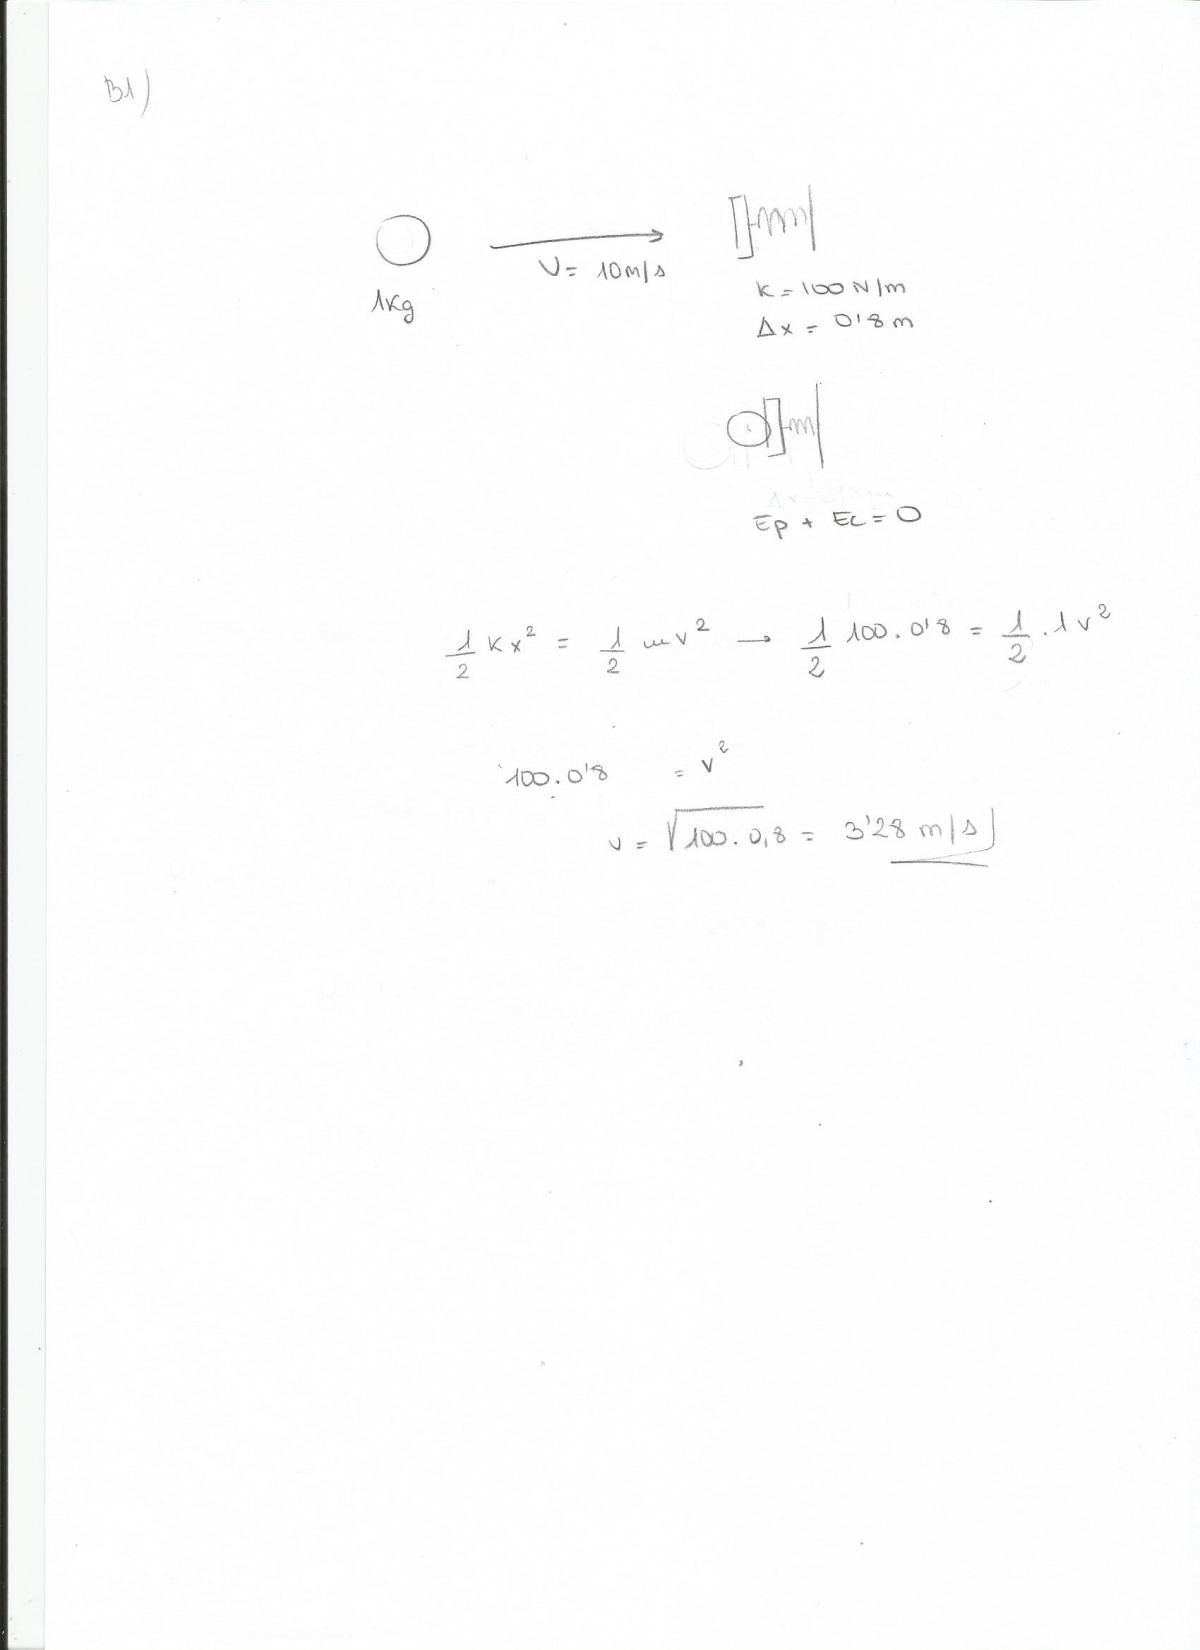 B1)
V = 10 m/s
1Kg
K = 100 N/m
Δx = 0'8 m
Ep + Ec = 0
1/2 K x² = 1/2 m v² → 1/2 100 . 0'8 = 1/2 . 1 v²
100 . 0'8 = v²
v = √100 . 0,8 = 3'28 m/s